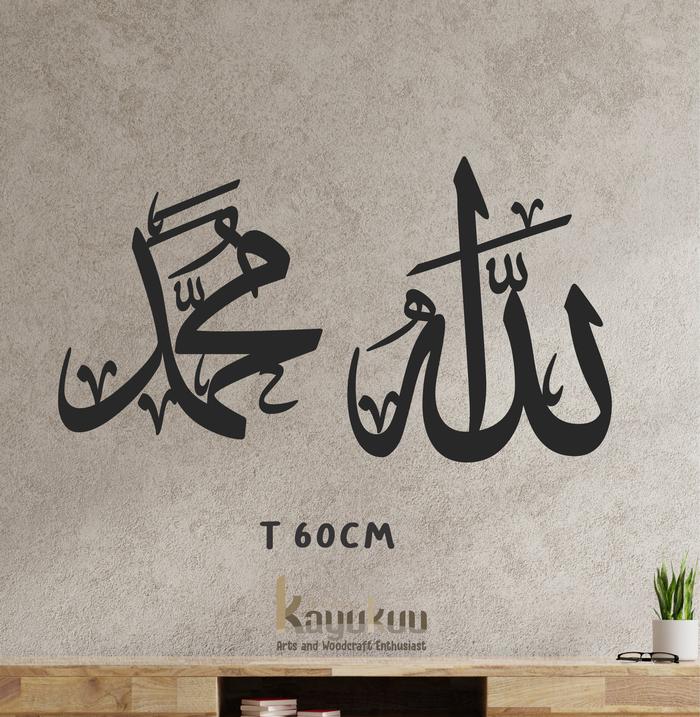 الله
محمد
T 60CM
kayukuu
Arts and Woodcraft Enthusiast